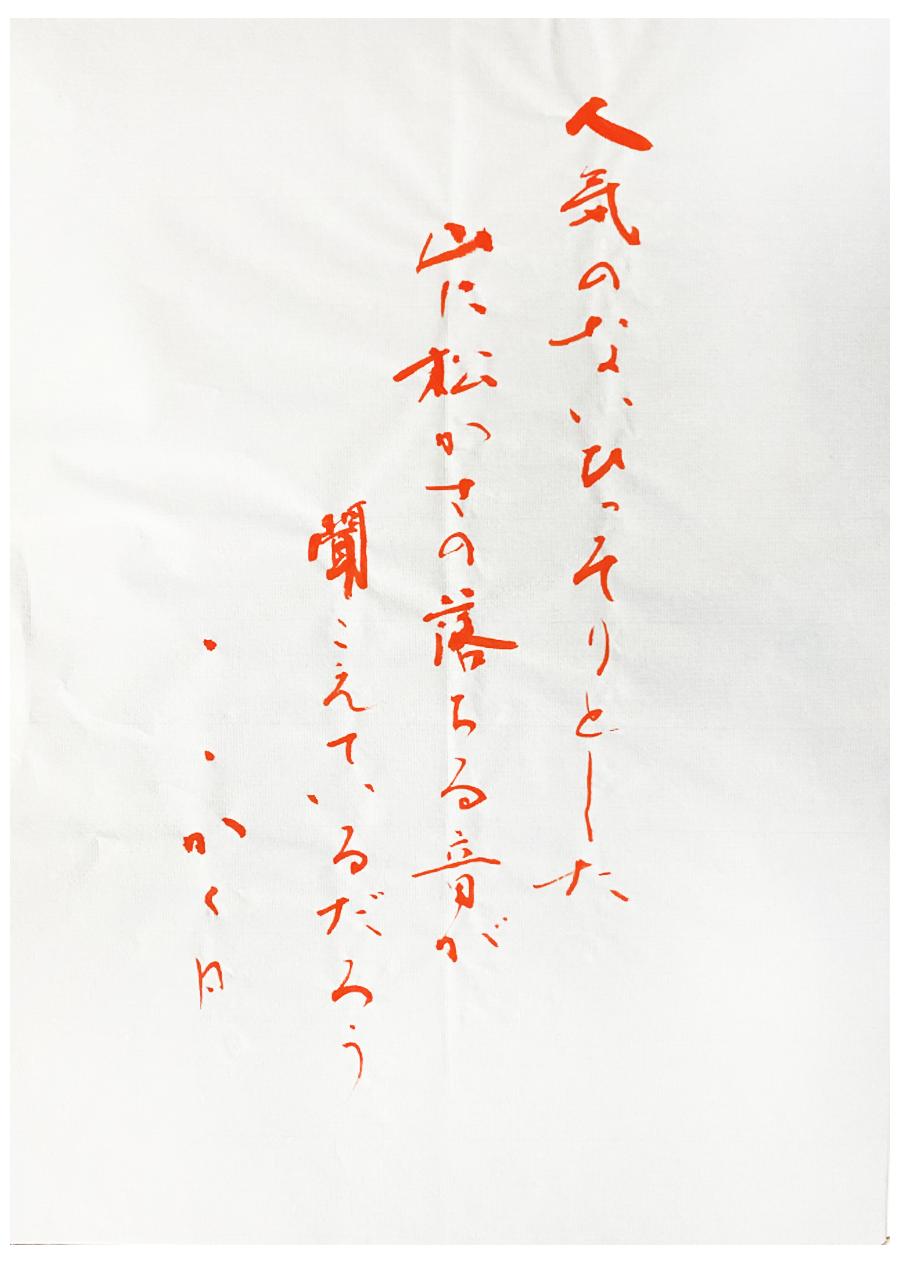 人気のないひっそりとした
山に松かさの落ちる音が
聞こえているだろう
・・かく日